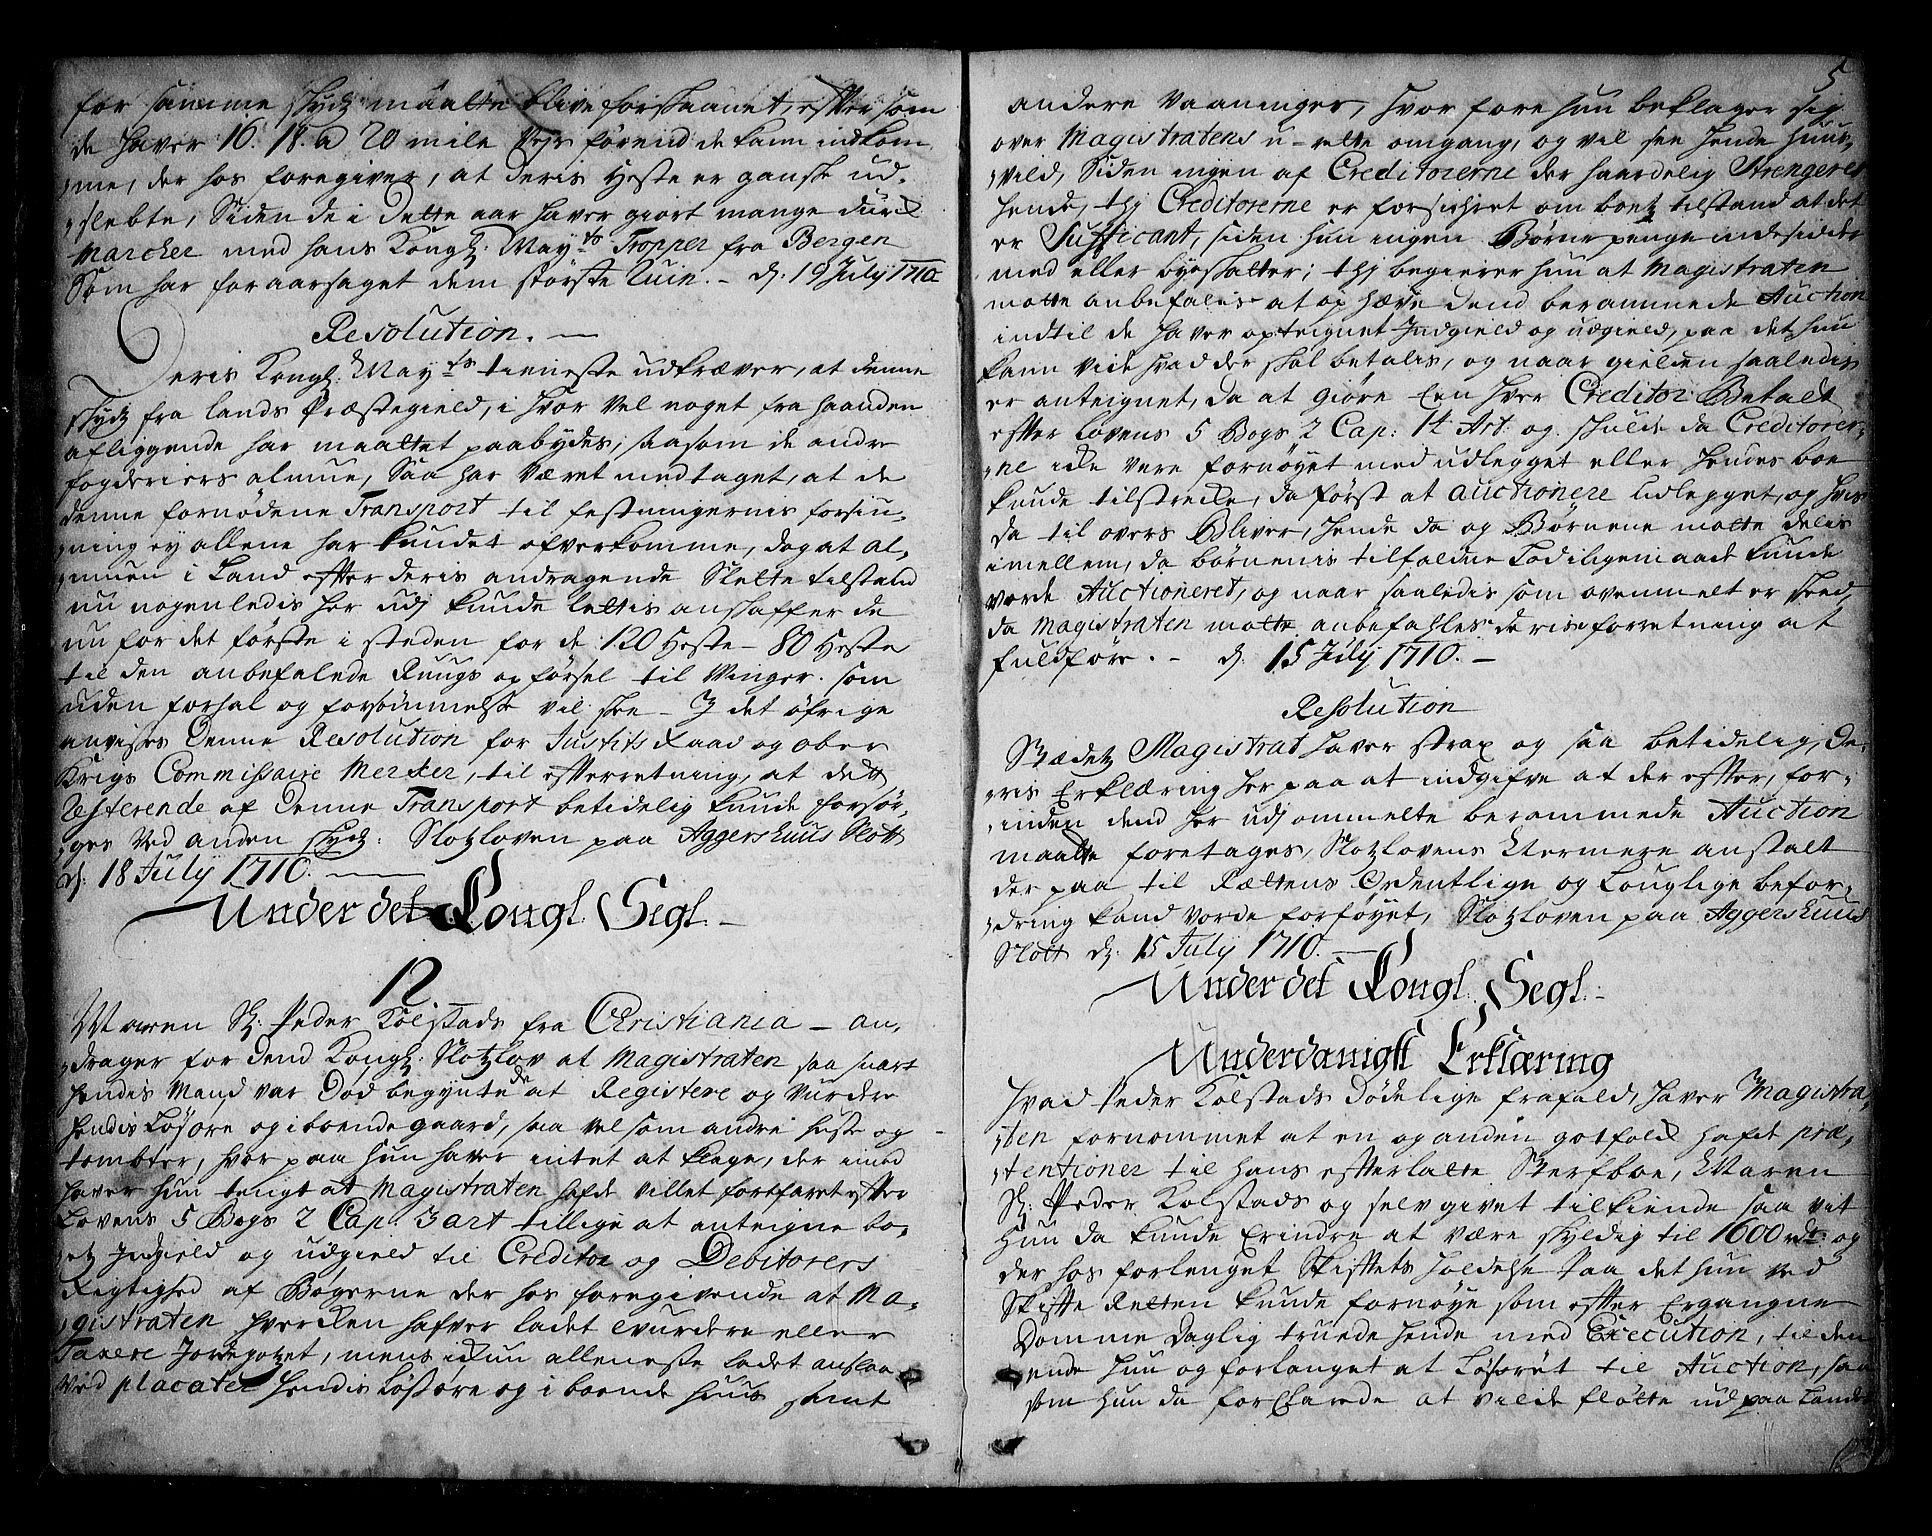 for samme skydz maatte blive forskaanet, efftersom
de haver 16. 18. a 20 mile Veys førend de kann indkom¬
me, der hos foregiver, at deris Heste er ganske ud¬
slebte, Siden de i dette aar haver giort mange durch
Marcher med hans Kongl: Mayts Tropper fra Bergen
Som har foraarsaget dem største Ruin. – d: 19 July 1710
Resolution. –
Deris Kongl: Mayts tieneste udkræver, at denne
skydz fra lands Præstegield, i hvor vel noget fra haanden
afliggende har maattet paabydes, saasom de andre
fogderiers almue, Saa har været medtaget, at de
denne fornødene Transport til festningernes forsiu¬
ning ey allene har kundet afverkomme, dog at al¬
muen i Land effter deris andragende Slette tilstand
nu nogenledis her udj kunde lettis anskaffer de
nu for det første i steden for de 120 Heste – 80 Heste
til den anbefalede Ruugs opførsel til Winger. som
uden forhal og forsømmelse vil skee – J det øfrige
anvises Denne Resolution for Justits Raad og ober
Krigs Commissaire Mercker, til effterretning, at dett
Resterende af denne Transport betidelig kunde forsør¬
ges Ved anden skydz: Slotzloven paa Aggershuus Slott
d: 18 July 1710. –
Under det Kongl. Segl. –
12
Maren Sl: Peder Kolstads fra Christiania – an¬
drager for dend Kongl: Slotzlov at Magistraten saa snart
hendis Mand var Død begynte de at Registere og Vurdere
hendis Løsøre og iboende gaard, saa vel som andre huse og
tombter, hvor paa hun haver intet at klage, der imod
haver hun tengt at Magistraten hafde villet fortfaret effter
Lovens 5 Bogs 2 Cap. 3 art tillige at anteigne bo¬
etz Jndgield og udgield til Creditor og Debitorers
Rigtighed af Bøgerne der hos foregivende at Ma¬
gistraten hverchen hafver ladet vurdere eller
Taxere Jordegotzet, mens ickun alleneste ladet anslaa
Ved placater hendis Løsøre og iboende huus samt
5
andere Vaaninger, hvor fore hun beklager sig
over Magistratens u-rette omgang, og vil see hende huus¬
vild, Siden ingen af Creditorerne der haardelig Strengeret
hende, thj Creditorerne er forsichret om boetz tilstand at det
er Sufficant, siden hun ingen Børne penge indesidder
med eller byeskatter; thj begierer hun at Magistraten
motte anbefales at ophæve dend berammede Auction
indtil de haver opteignet Jndgield og udgield, paa det hun
kann vide hvad der skal betalis, og naar gielden saaledis
er anteignet, da at giøre Een hver Creditor Betalt
effter Lovens 5 Bogs 2 Cap: 14 Art. og skulde da Creditorer¬
ne icke vere fornøyet med udlegget eller hendes boe
kunde tilstrecke, da først at auctionere udlegget, og hvis
da til overs Bliver, hende da og Børnene motte delis
imellem, da børnenis tilfaldne Lod ligemaade kunde
vorde Auctioneret, og naar saaledis som ovenmelt er skeed,
da Magistraten motte anbefahles deris forretning at
fuldføre. – d: 15 July 1710. –
Resolution
Stædetz Magistrat haver strax og saa betidelig, de¬
ris Erklæring her paa at indgifve at der effter, for¬
inden dend her udj ommelte berammede Auction
maatte foretages, Slotzlovens Wermere anstalt
der paa til Rættens Ordentlige og Louglige befor¬
dring kand vorde forføyet, Slotzloven paa Aggershuus
Slott d: 15 July 1710. –
Under det Kongl. Segl. –
Underdanigst Erklæring
Hvad Peder Kolstads Dødelige frafald, haver Magistra¬
ten fornommet at en og anden gotfolck hafde præ¬
tentioner til hans effterlatte Sterfboe, Maren
Sl: Peder Kolstads og selv givet tilkiende saa vit
Hun da kunde Erindre at være skyldig til 1600 rdr: og
der hos forlenget Skifftets holdelse Paa det hun ved
Skiffte Retten kunde fornøye som effter Ergangne
Domme Daglig truede hende med Execution, til den
ende hun og forlanget at Løsøret til Auction, saa
som hun da forklarede at vilde fløtte ud paa Landet